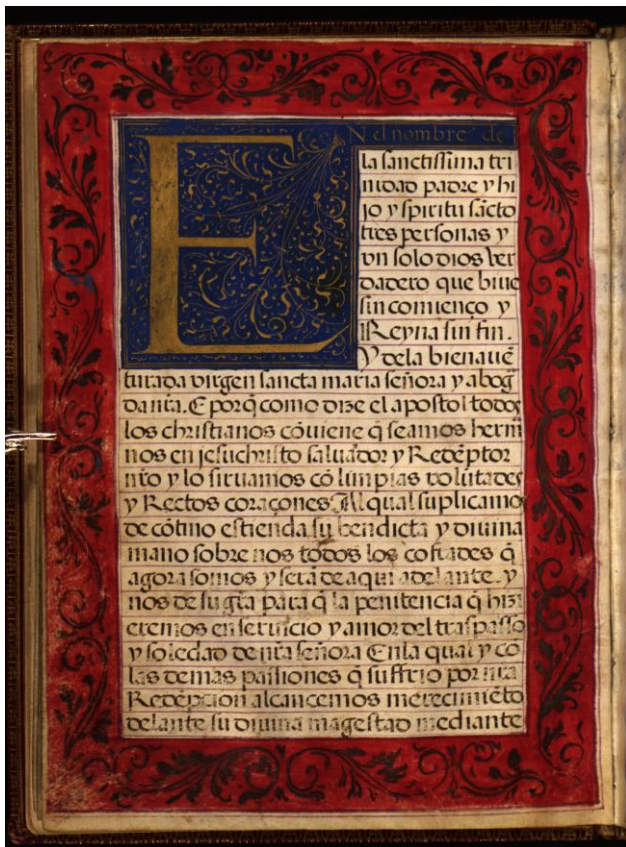 EN el nombre de
la sanctissima tri
nidad padre y hi
jo y spiritu sãcto
tres personas y
vn solo dios ber
dadero que biue
sin comienço y
Reyna sin fin.
Y dela bienauẽ
turada virgen sancta maria señora y abog
da nr̃a. E porq̃ como dize el apostol todos
los christianos cõuiene q̃ seamos herm
nos en jesuchristo saluador y Redẽptor
nr̃o y lo siruamos cõ limpias volũtades
y Rectos coraçones Al qual suplicamo
de cõtino estienda su bendicta y diuina
mano sobre nos todos los cofrades q̃
agora somos y serã de aqui adelante. y
nos de su gr̃a para q̃ la penitencia q̃ hizi
eremos en seruicio y amor del traspasso
y soledad de nr̃a señora Enla qual y cõ
las demas passiones q̃ suffrio por nr̃a
Redẽpcion alcancemos merecimiẽto
delante su diuina magestad mediante